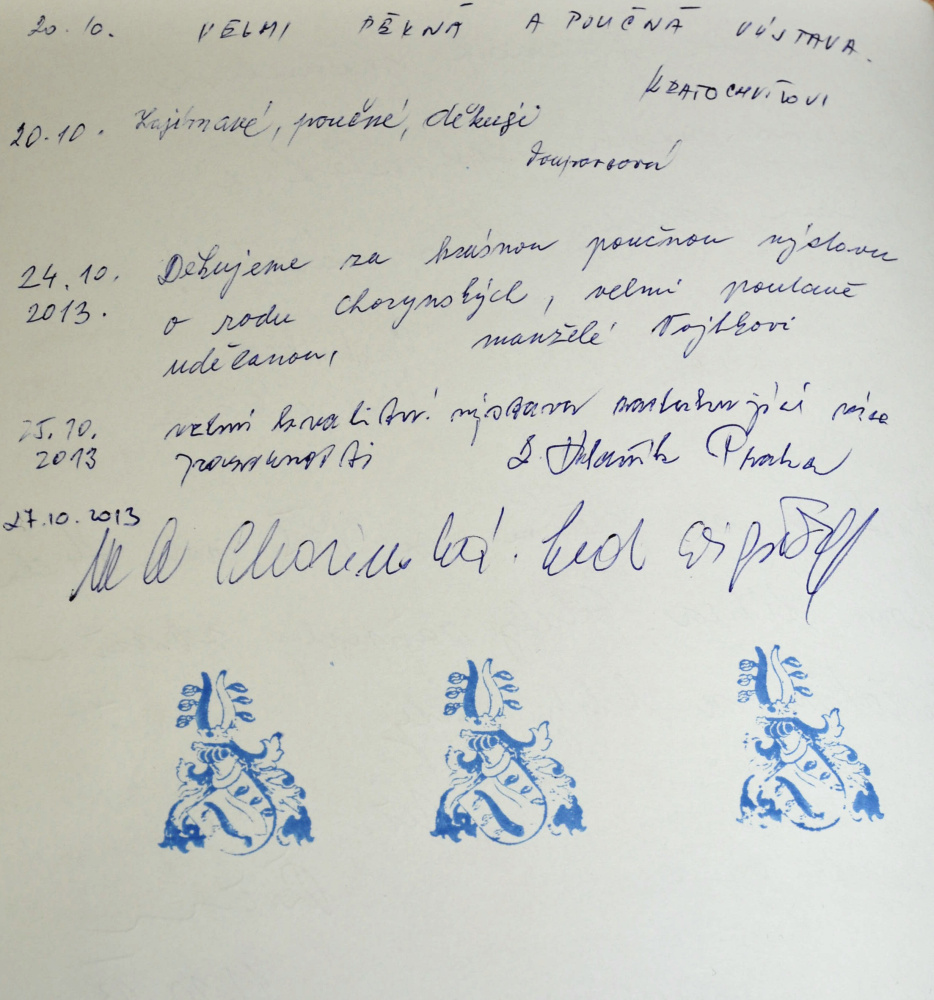 20.10. VELMI PĚKNÁ A POUČNÁ VÝSTAVA.
KRATOCHVÍLOVI
20.10. Zajímavé, poučné, děkuji
24.10. Děkujeme za krásnou poučnou výstavu
2013. o rodu Chorynských, velmi poutavě
udělanou, manželé Vojtkovi
25.10. velmi kvalitní výstava zasluhující více
2013 pozornosti Praha
27.10.2013